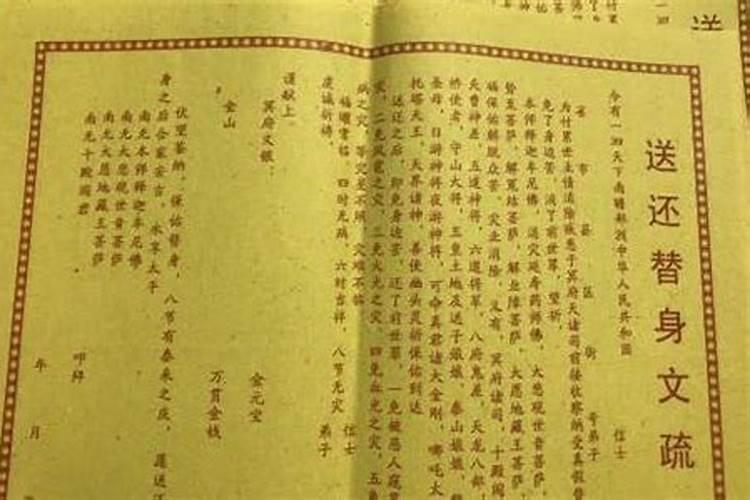 送还替身文疏
今有一四天下南赡部洲中华人民共和国 信士
省 市 县 区 街 号弟子
为付累世主情消除
免了身边苦,消了前世罪
本师释迦牟尼佛,消灾延寿药师佛,大悲观世音菩萨
解冤结菩萨,解业障菩萨,大愿地藏王菩萨
福保佑解脱众苦,灾业消除,又有,冥府诸司,十殿阎
天曹神差,五道神将,六道将军,八府鬼差,天龙八部
桥使者,守山大将,五皇土地及送子娘娘,泰山娘娘
圣母,日游神将夜游神将,可命真君诸大金刚,哪吒太
托塔天王,天界诸神
送还之后,即免身边苦,还了前世罪,一免被恶人
灾,二免风雹之灾,三免火光之灾,四免血光之灾,五免
病之灾,等灾足不顾,灾难不临
福履常临 四时无病,六时吉祥,八节无灾 信士
虔诚祈祷, 弟子
谨献上
冥府文银, 金元宝
金山 万贯金钱
伏望鉴纳,保佑替身,八节有泰来之庆,
身之后合家安吉,永享太平
南无本师释迦牟尼佛
南无大悲观世音菩萨
南无大愿地藏王菩萨
南无十殿阎君
叩拜
年 月